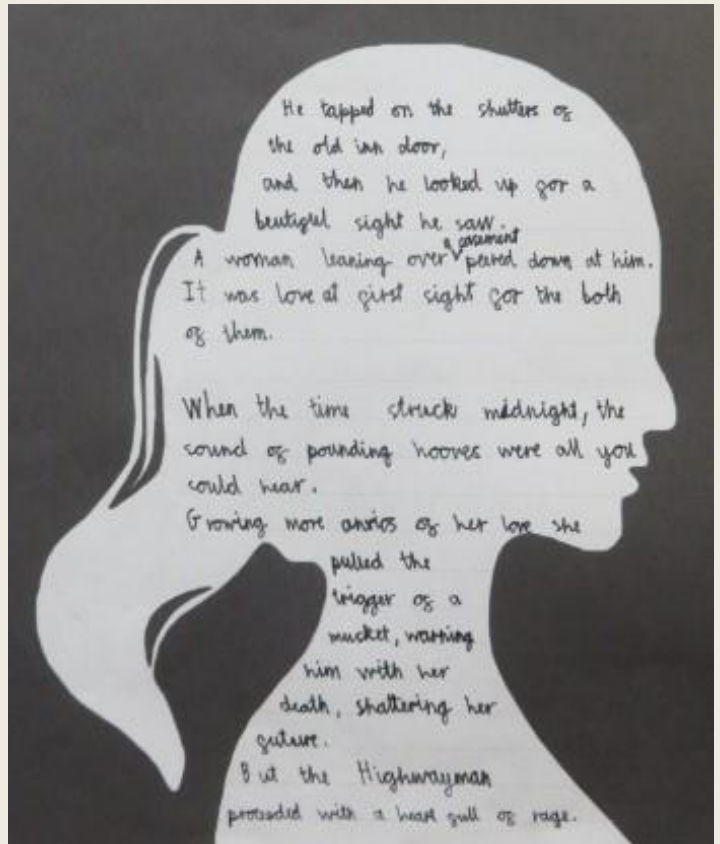 He tapped on the shutters of
the old inn door,
and then he looked up for a
beutiful sight he saw.
A woman leaning over a casement peered down at him.
It was love at first sight for the both
of them.
When the time struck midnight, the
sound of pounding hooves were all you
could hear.
Growing more anxios of her love she
pulled the
trigger of a
mucket, warning
him with her
death, shattering her
future.
But the Highwayman
proceded with a heart full of rage.